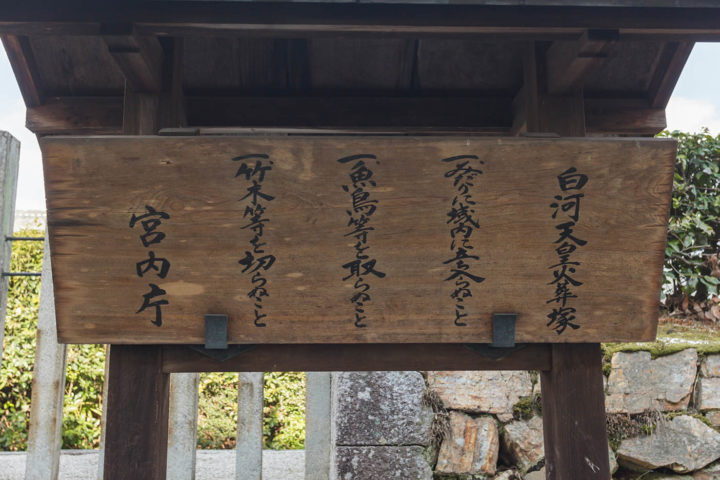 白河天皇火葬塚
一、みだりに域内に立入らぬこと
一、魚鳥等を取らぬこと
一、竹木等を切らぬこと
宮内庁